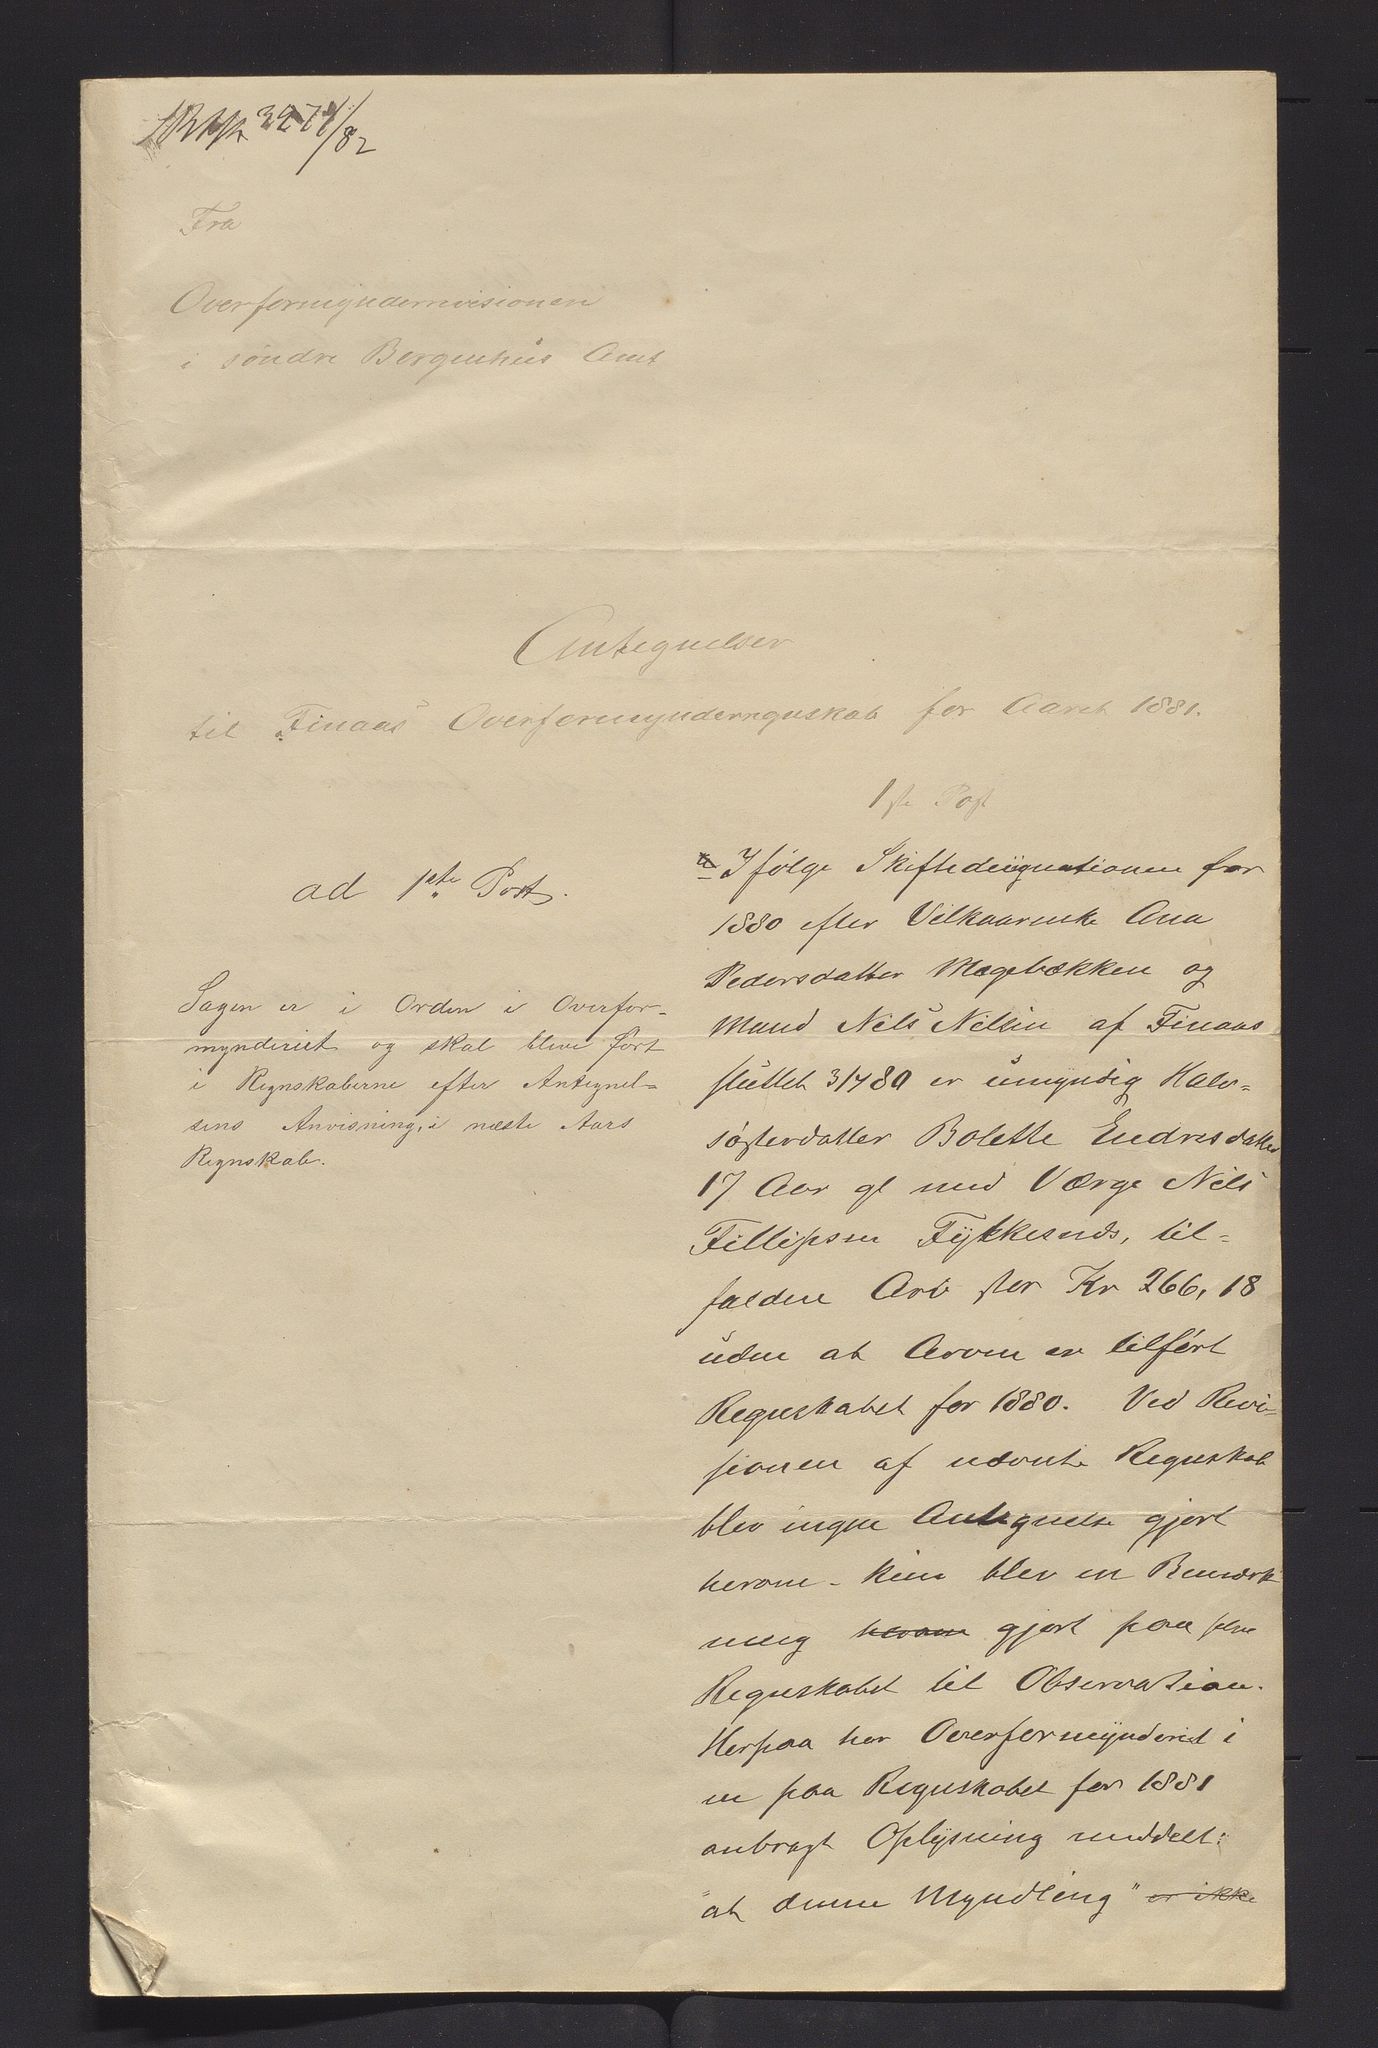 3274/82
Fra
Overformynderrevisionen
i søndre Bergenhus Amt
Antegnelser
til Finaas Overformynderregnskab for Aaret 1881.
1ste Post
ad 1ste Post.
Sagen er i Orden i Overfor-
mynderiet og skal blive ført
i Regnskaberne efter Antegnel-
sens Anvisning, i næste Aars
Regnskab.
Ifølge Skiftedesignationen for
1880 efter Vilkaarenke Ana
Pedersdatter Mægebækken og
Mand Nils Nilsen af Finaas
sluttet 31/7 80 er umyndig Halv-
søsterdatter Bolette Endresdatter
17 Aar gl med Værge Nils
Fillipsen Fykkesnds, til-
falden Arv stor Kr 266,18
uden at Arven er tilført
Regnskabet for 1880. Ved Revi-
sionen af nævnte Regnskab
blev ingen Antegnelse gjort
herom - kun blev en Bemærk
ning herom gjort paa selve
Regnskabet til Observation.
Herpaa har Overformynderiet i
en paa Regnskabet for 1881
anbragt Oplysning meddelt:
"at denne Myndling" er ikke